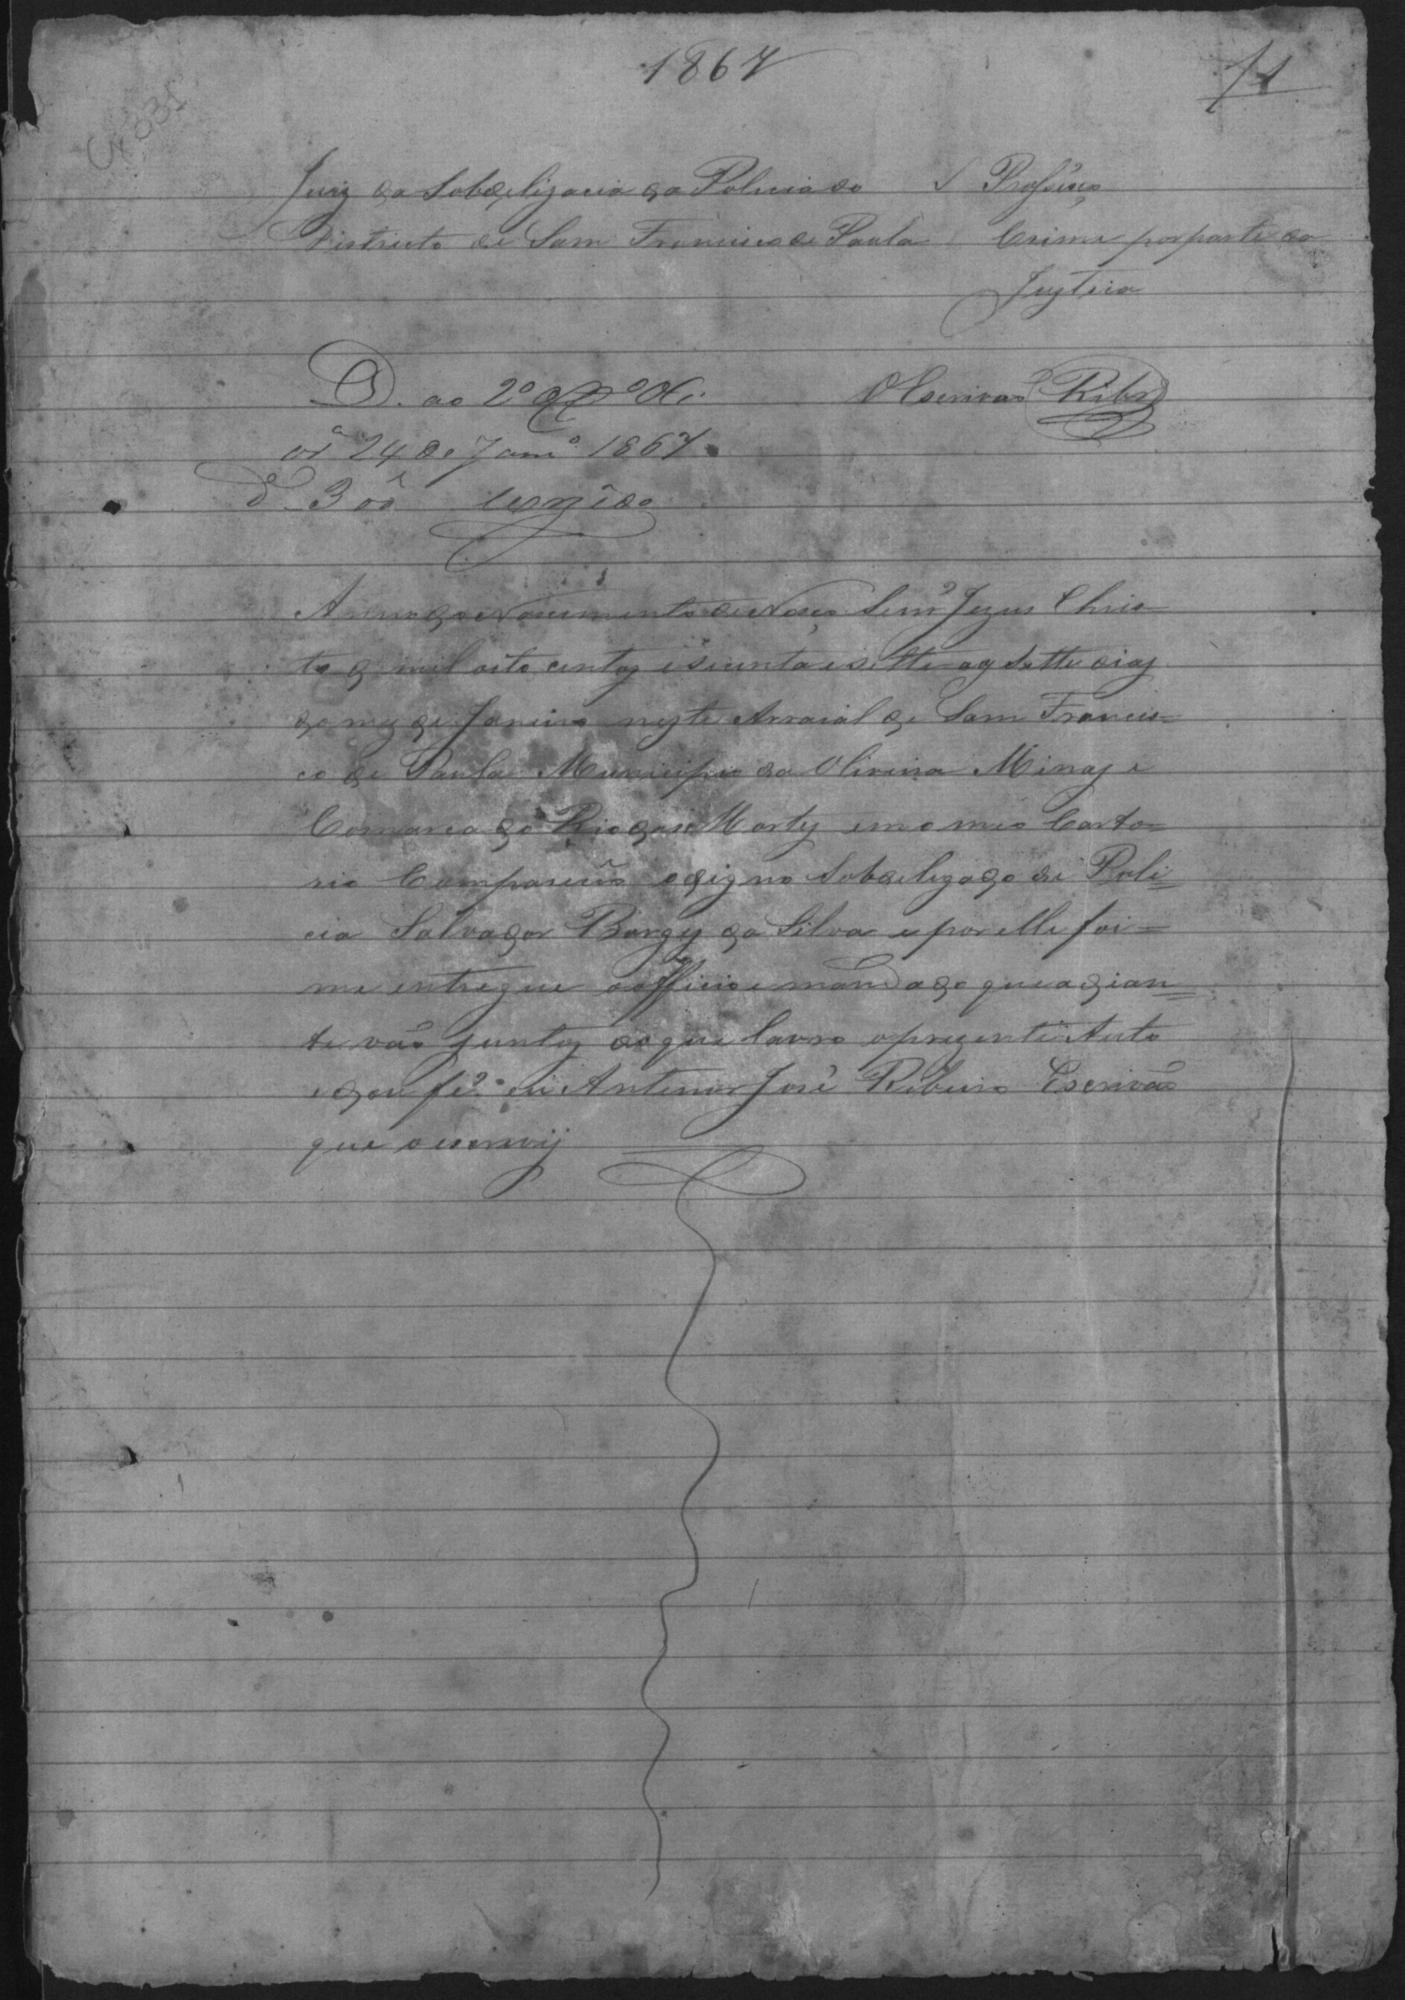 1867
Juiz da Sobdeligacia da Policia do
Districto de Sam Francisco de Paula
Crime por parte da
Justica
D. ao 2º
24 de Janrº 1867.
O Escrivaõ Ribrº
Anno do Nascimento de Nosso Senrº Jezus Chris-
to de mil oito centos e secenta e sette aos sette dias
do mez de Janeiro neste Arraial de Sam Francis=
co de Paula Municipio da Oliveira Minas e
Comarca do Rio das Mortes em o meo Carto=
rio Compareceo o digno Sobdelegado de Poli=
cia Salvador Borges da Silva e por elle foi=
me entregue o officio e mandado que adian=
te vaõ juntos do que lavro o prezente Auto
e dou fé. eu Antenor José Ribeiro Escrivaõ
que o escrevij